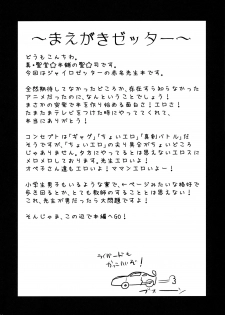 〜まえがきゼッター〜
どうもこんちわ。
真・聖堂☆本舗の聖☆司です。
今回はジャイロゼッターの赤名先生本です。
全然期待してなかったどころか、存在すら知らなかった
アニメだったのに、なんということでしょう!
まさかの突発で本を作り始める面白さ!エロさ!
たまたまテレビをつけた時にやっててくれて、
本当にありがとう!
コンセプトは「ギャグ」「ちょいエロ」「真剣バトル」だ
そうですが、「ちょいエロ」の尖り具合がちょいどころ
じゃありません。夕方にやってるとは思えないエロスに
メロメロしております。先生エロいよ!
オペ子さん達もエロいよ!ママンエロいよー!
小学生男子もいるような寮で、けつページみたいな格好で
歩き回るとか、教師のすることとは思えない!
これ、先生が男だったら大問題ですよ!
そんじゃま、この辺で本編へGO!
ライバードも
かっこいいぞ!
=3
ブオーン